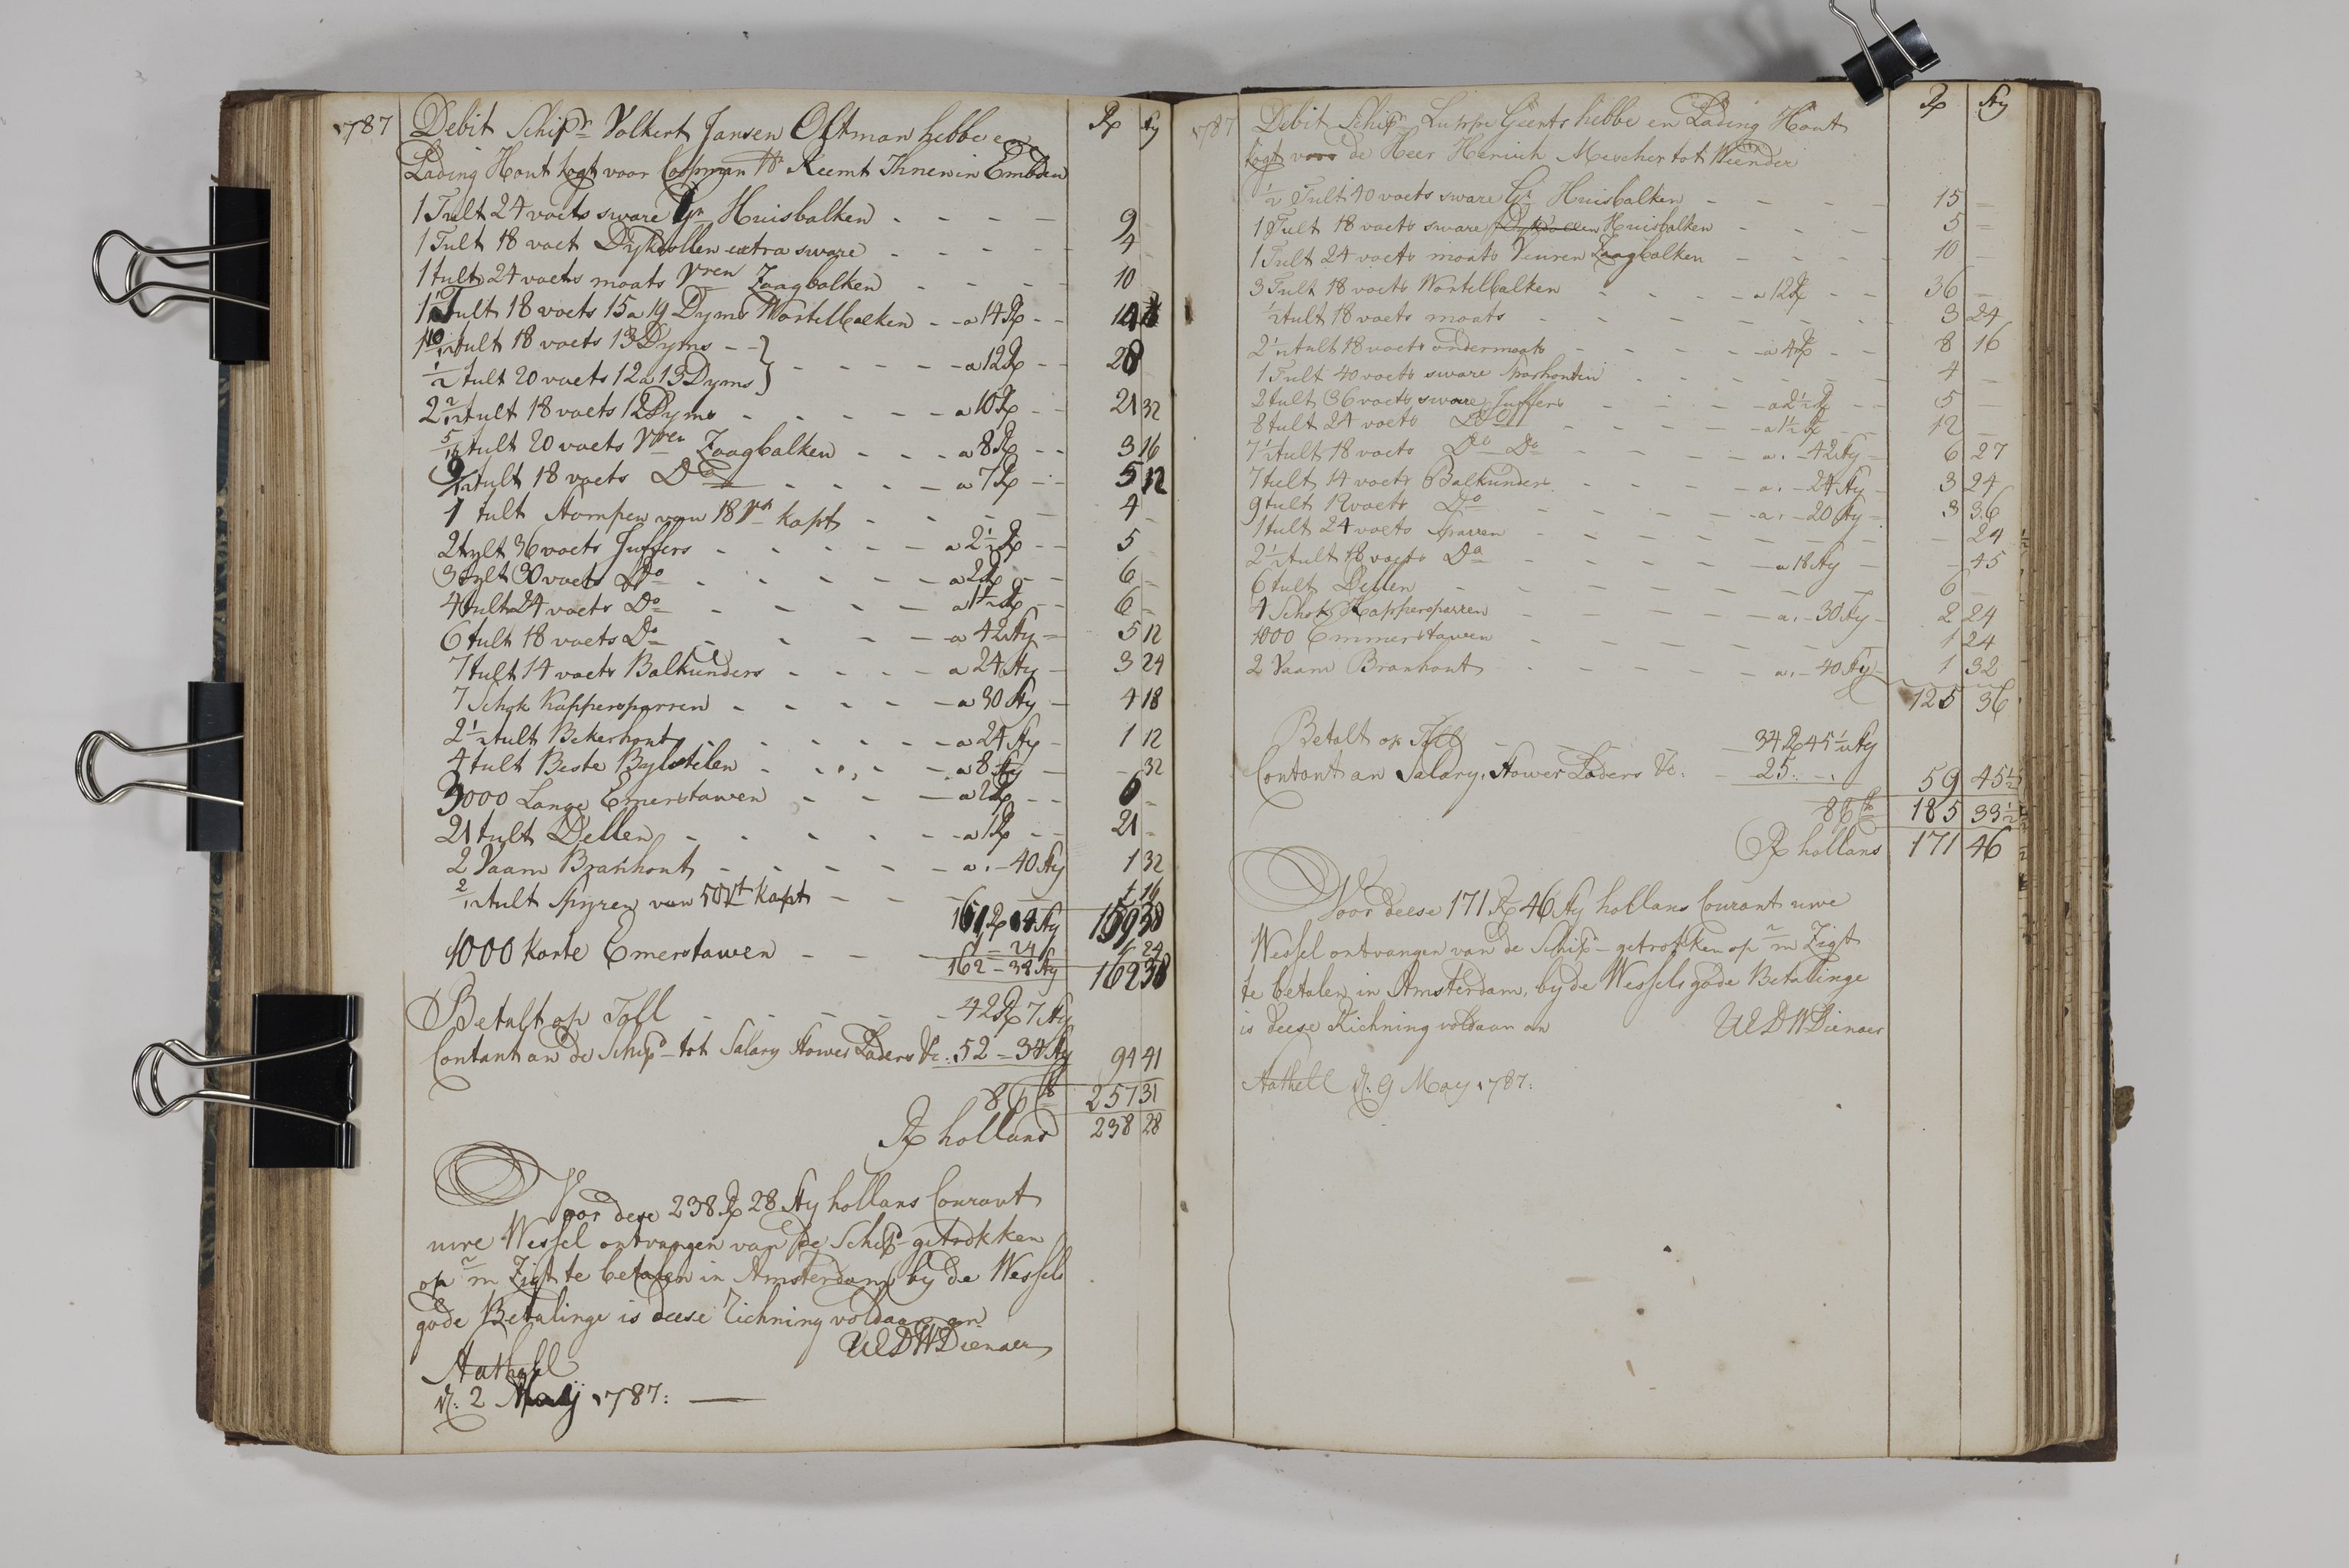 1787 Debit Schipr Volkert Jansen Oltman hebbe en Rx sty
Lading Hout kogt voor Coopman Hr Reemt Ihnen in Embden
1 Tult 24 voets sware Gr Huisbalken - - - - 9
1 Tult 18 voet Dykdollen extra sware - - - - 4
1 tult 24 voets moats Vren Zaagbalken - - - - 10
Tult 18 voets 15 a 19 Dyms Wortelbalken - - a 14 Rx - -
tult 18 voets 13 Dyms - -
1/2 tult 20 voets 12 a 13 Dyms } - - - - - a 12 Rx - - 28
2 2/12 tult 18 voets 12 Dyms - - - - - a 10 Rx - - 21 32
5/12 tult 20 voets Vren Zaagbalken - - - a 8 Rx - - 3 16
9/12 tult 18 voets Do - - - - a 7 Rx - - 5 12
1 tult Stompen van 18 Vt kapt - - - - 4
2 tylt 36 voets Juffers - - - - - a 2 1/2 Rx - - 5
3 tylt 30 voets Do - - - - - a 2 Rx - - 6
4 tult 24 voets Do - - - - a 1 1/2 Rx - - 6
6 tult 18 voets Do - - - - a 42 sty = 5 12
7 tult 14 voets Balkunders - - - - a 24 sty - 3 24
7 Schok Kappersparren - - - - - a 30 sty - 4 18
2 1/2 tult Bekerhout - - - - - a 24 sty - 1 12
4 tult Beste Bylstelen - - - - a 8 sty - - 32
3000 Lange Emerstawen - - - a 2 Rx - - 6
21 tult Dellen - - - - - - a 1 Rx - - 21
2 Vaam Branhout - - - - - - a . - 40 sty 1 32
2/12 tult Spyren van 50 Vt kapt - - - 16
1000 korte Emerstawen - - - 1 - 24 1 24
162 - 38 sty 162 38
Betalt op Toll - - - - - 42 Rx 7 sty
Contant an de Schipr tot Salary Stower Laders &c: 52 = 34 sty 94 41
86 257 31
Rx hollans 238 28
Voor dese 238 Rx 28 sty hollans Courant
uwe Wessel ontvangen van de Schipr getrokken
op 2/m Zigt te betalen in Amsterdam by de Wessels
gode Betalinge is deese Richning voldaan an
UEDWDienaer
Aathall
d. 2 Maij 1787: -
1787 Debit Schipr Luppe Geerts hebbe en Lading Hout Rx sty
kogt voor de Heer Henrich Mescher tot Weender
1/2 Tult 40 voets sware Gr Huisbalken - - - - 15 -
1 Tult 18 voets sware Dykdollen Huisbalken - - - 5 =
1 Tult 24 voets moats Veuren Zaagbalken - - - - 10 -
3 Tult 18 voets Wortelbalken - - - a 12 Rx - - 36 -
1/2 tult 18 voets moats - - - - - - - 3 24
2 1/12 tult 18 voets ondermoats - - - - a 4 Rx - - 8 16
1 Tult 40 voets sware Sparhouten - - - - - 4 -
2 tult 36 voets sware Juffers - - - a 2 1/2 Rx - - 5 -
8 tult 24 voets Do - - - - - a 1 1/2 Rx - - 12 -
7 1/2 tult 18 voets Do Do - - - - a . - 42 sty = 6 27
7 tult 14 voets Balkunders - - - - a . - 24 sty - 3 24
9 tult 12 voets Do - - - - a . - 20 sty = 3 36
1 tult 24 voets sparren - - - - - - - - 24
2 1/2 tult 18 voets Do - - - - a 18 sty - - 45
6 tult Dellen - - - - - - - 6 -
4 Schok Kappersparren - - - - a . - 30 sty - 2 24
1000 Emmerstawen - - - - - - 1 24
2 Vaam Branhout - - - - - a . - 40 sty - 1 32
125 36
Betalt op Toll - - - 34 Rx 45 1/2 sty
Contant an Salary, Stower Laders &c: - 25 . - . 59 45 1/2
86 185 33 1/2
Rx hollans 171 46
Voor deese 171 Rx 46 sty hollans Courant uwe
Wessel ontvangen van de Schipr getrokken op 2/m Zigt
te betalen in Amsterdam, by de Wessels gode Betalinge
is deese Richning voldaan an UEDWDienaer
Aathall d. 9 May 1787: